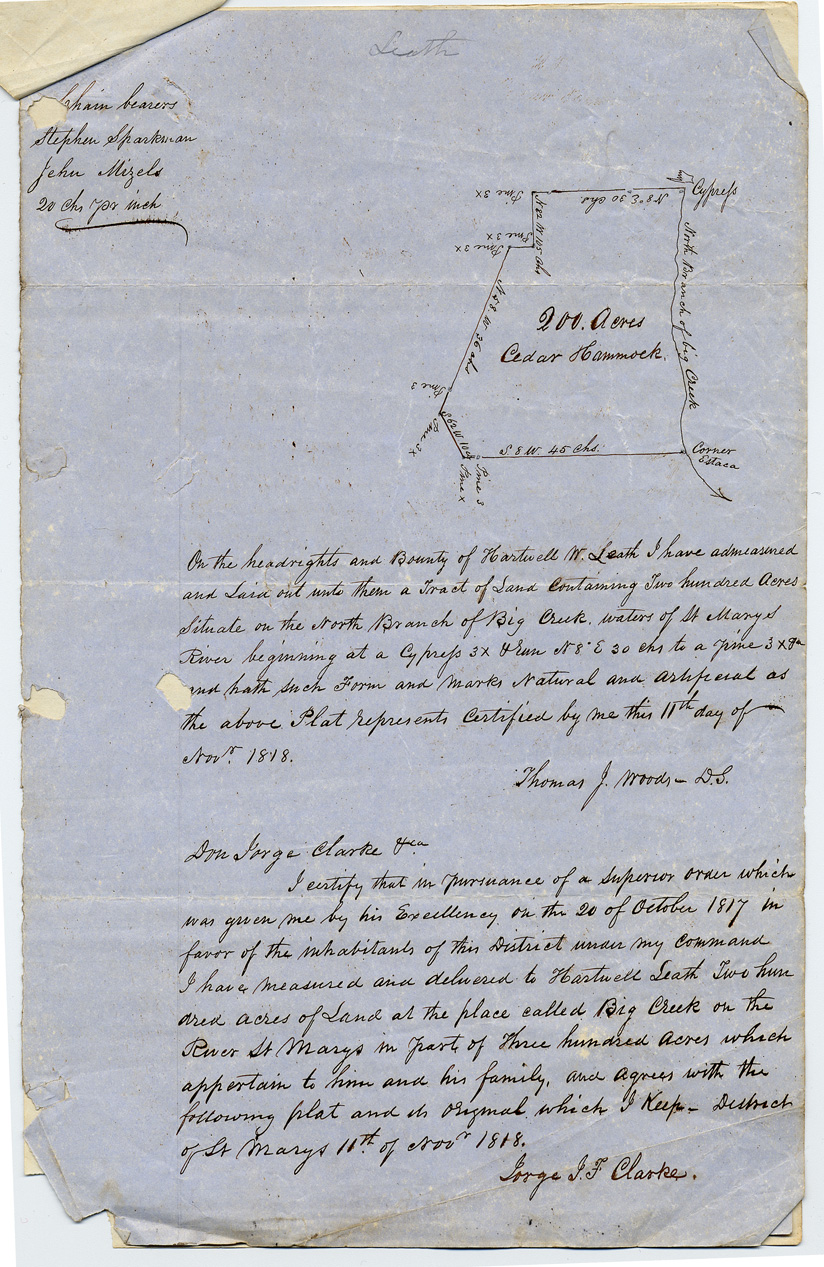 Leath
Chain bearers
Stephen Sparkman
John Mizels
20 Chs pr inch
Cypress
N 8° E 30 Chs
Pine 3X
N 82 W 105 Chs
Pine 3X
Pine 3X
N 58 W 36 Chs
Pine 3
Pine 3X
Pine X
Pine 3
S. 8 W. 45 Chs.
Corner
Estaca
North Branch of big Creek
200. Acres
Cedar Hammock.
On the headrights and Bounty of Hartwell W. Leath I have admeasured
and Laid out unto them a Tract of Land Containing Two hundred Acres
Situate on the North Branch of Big Creek, waters of St Marys
River beginning at a Cypress 3X & Run N 8° E 30 chs to a pine 3X &a
and hath such Form and marks Natural and artificial as
the above Plat represents Certified by me this 11th day of
Novr. 1818.
Thomas J. Woods - D.S.
Don Jorge Clarke &ca
I certify that in pursuance of a superior order which
was given me by his Excellency on the 20 of October 1817 in
favor of the inhabitants of this District under my Command
I have measured and delivered to Hartwell Leath Two hun
dred acres of Land at the place called Big Creek on the
River St Marys in part of Three hundred Acres which
appertain to him and his family, and agrees with the
following plat and its original which I Keep - District
of St Marys 11th of Novr 1818.
Jorge J. F. Clarke.